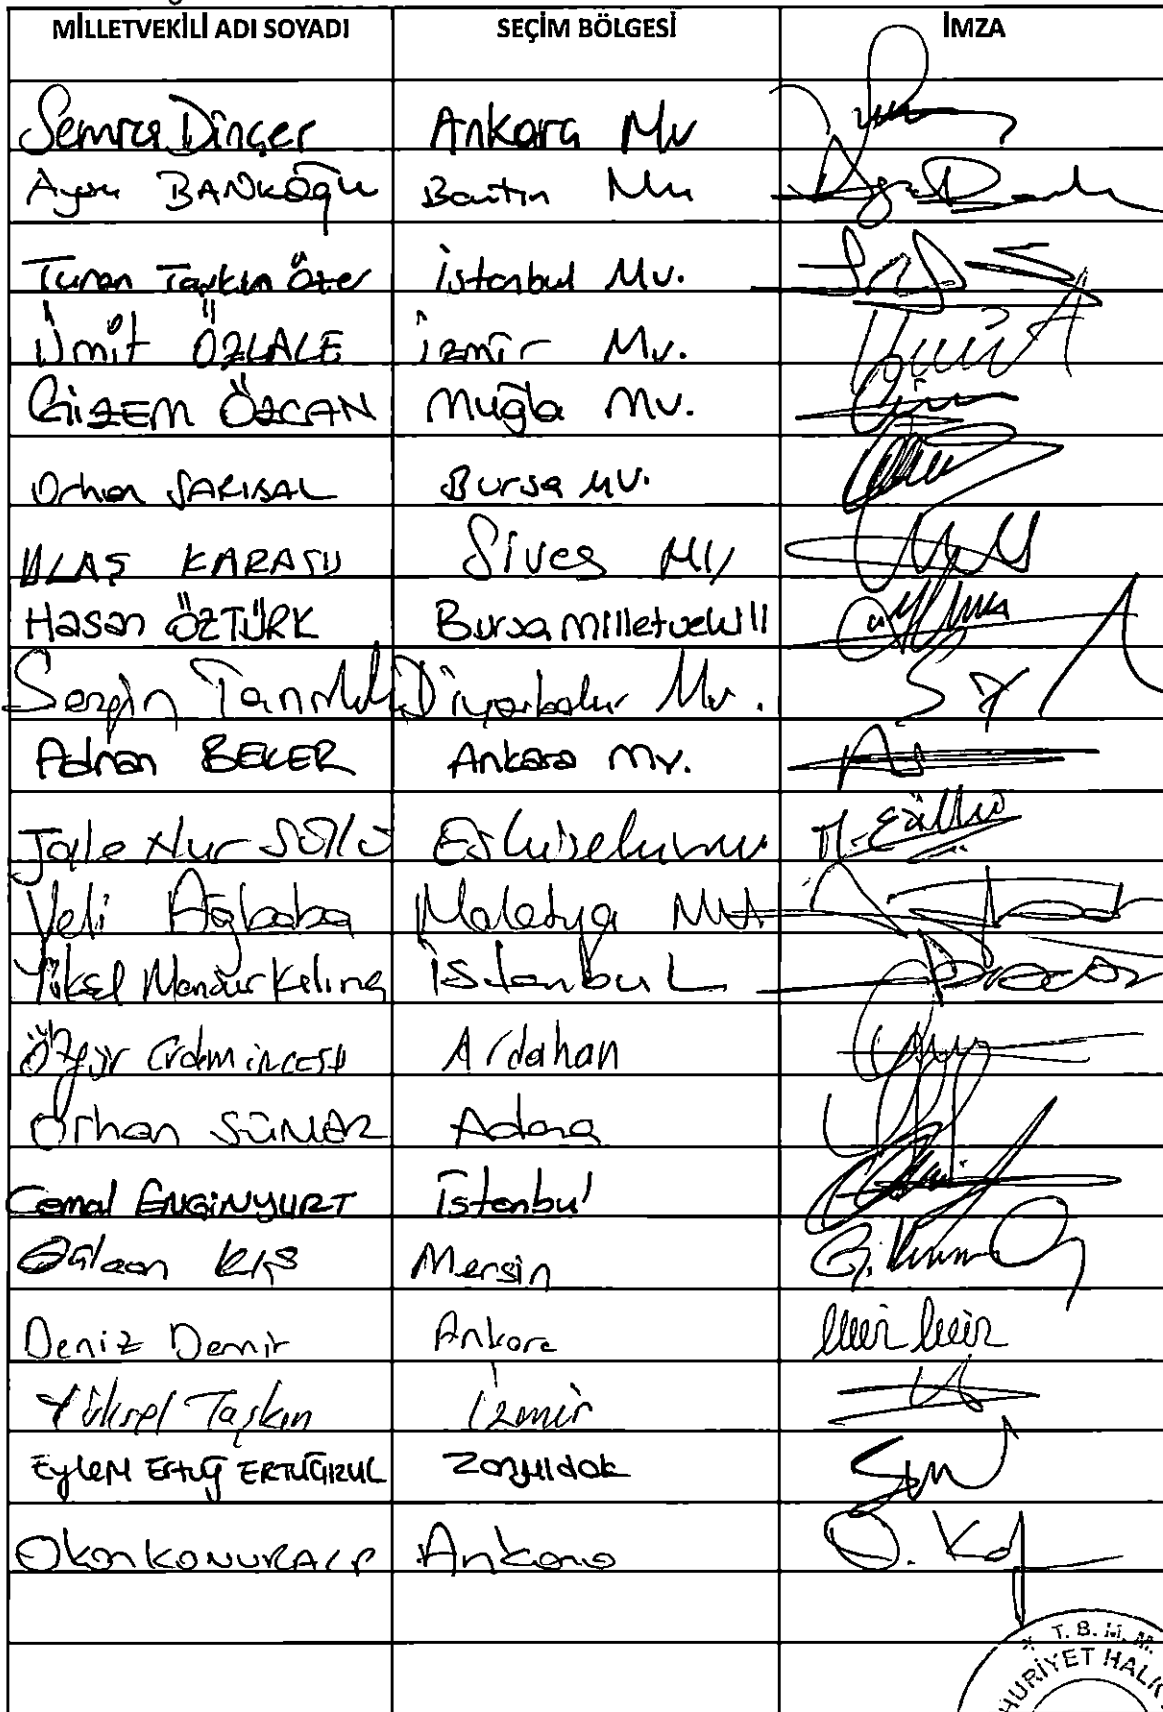 MİLLETVEKİLİ ADI SOYADI SEÇİM BÖLGESİ İMZA
Semra Dinçer Ankara Mv
Aysu BANKOĞLU Bartın Mv
Turan Taşkın Özer İstanbul Mv.
Ümit ÖZLALE İzmir Mv.
Gizem ÖZCAN Muğla Mv.
Orhan SARIBAL Bursa MV.
ULAŞ KARASU Sivas MV
Hasan ÖZTÜRK Bursa Milletvekili
Sezgin Tanrıkulu Diyarbakır Mv.
Adnan BEKER Ankara Mv.
Jale Nur Süllü Eskişehir
Veli Ağbaba Malatya
Yüksel Mansur Kılınç İstanbul
Özgür Erdem İncesu Ardahan
Orhan SÜMER Adana
Cemal ENGİNYURT İstanbul
Gülcan KIŞ Mersin
Deniz Demir Ankara
Yüksel Taşkın İzmir
Eylem Ertuğ ERTUĞRUL Zonguldak
Okan KONURALP Ankara
T.B.M.M.
HURİYET HALK